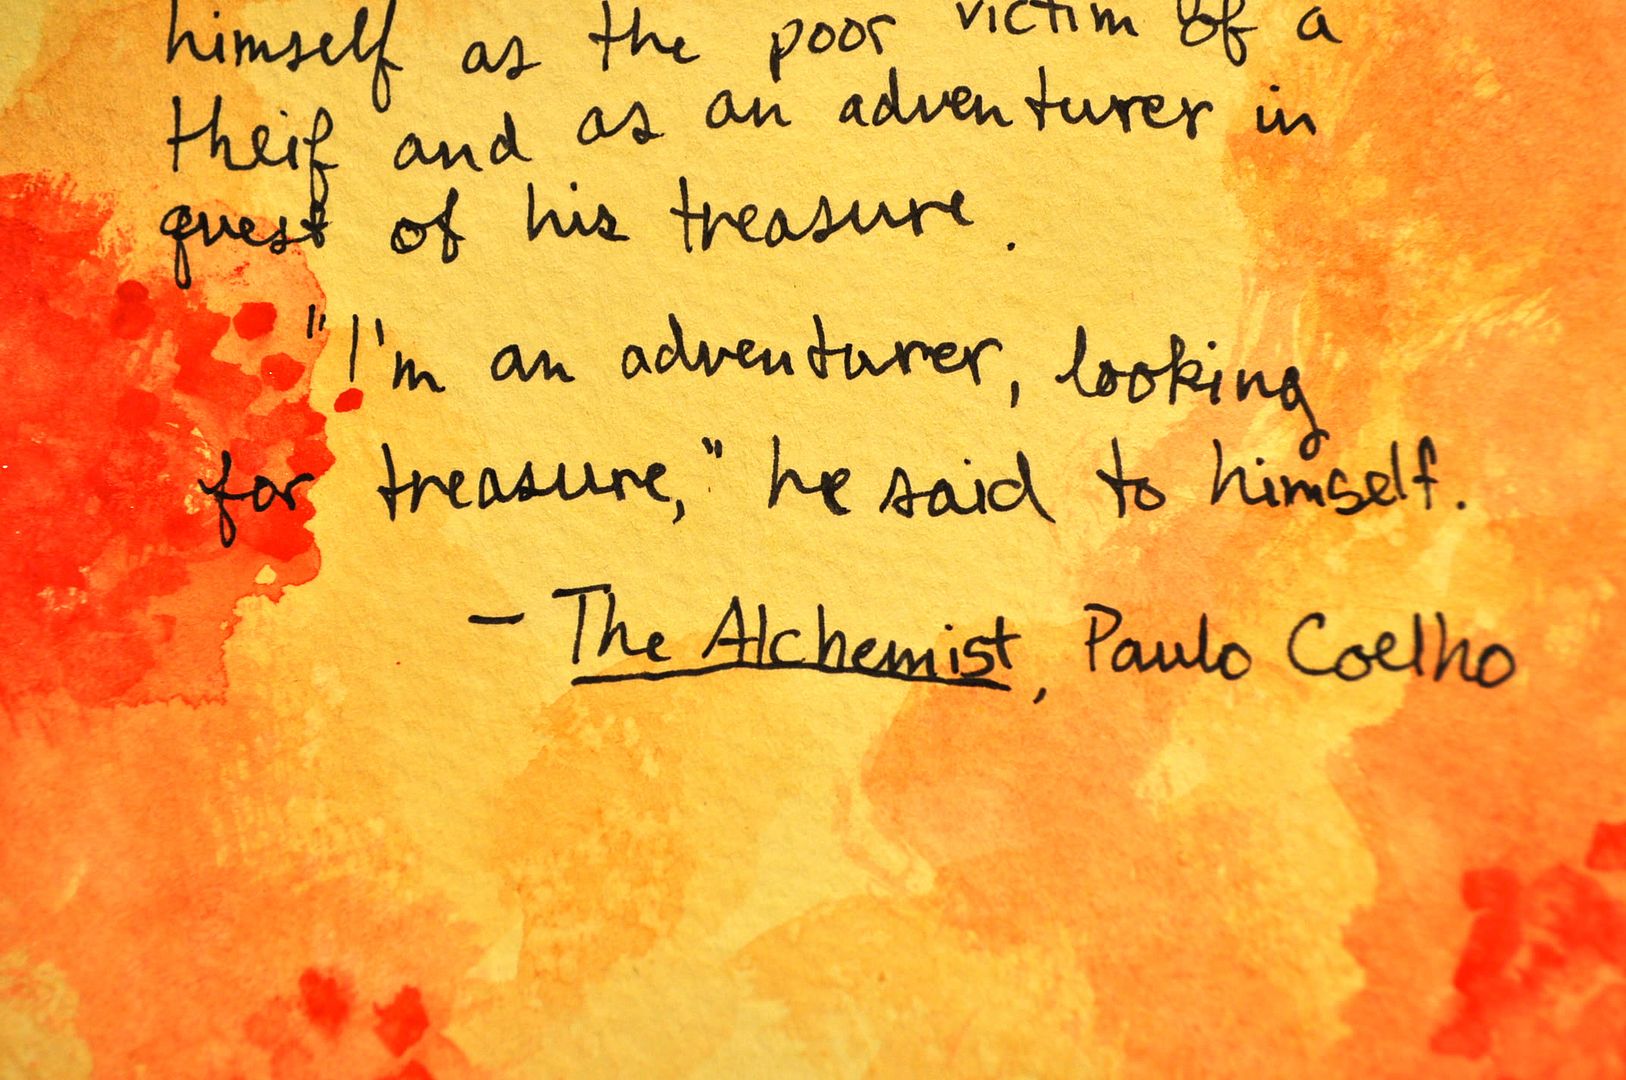 himself as the poor victim of a
theif and as an adventurer in
quest of his treasure.
"I'm an adventurer, looking
for treasure," he said to himself.
- The Alchemist, Paulo Coelho